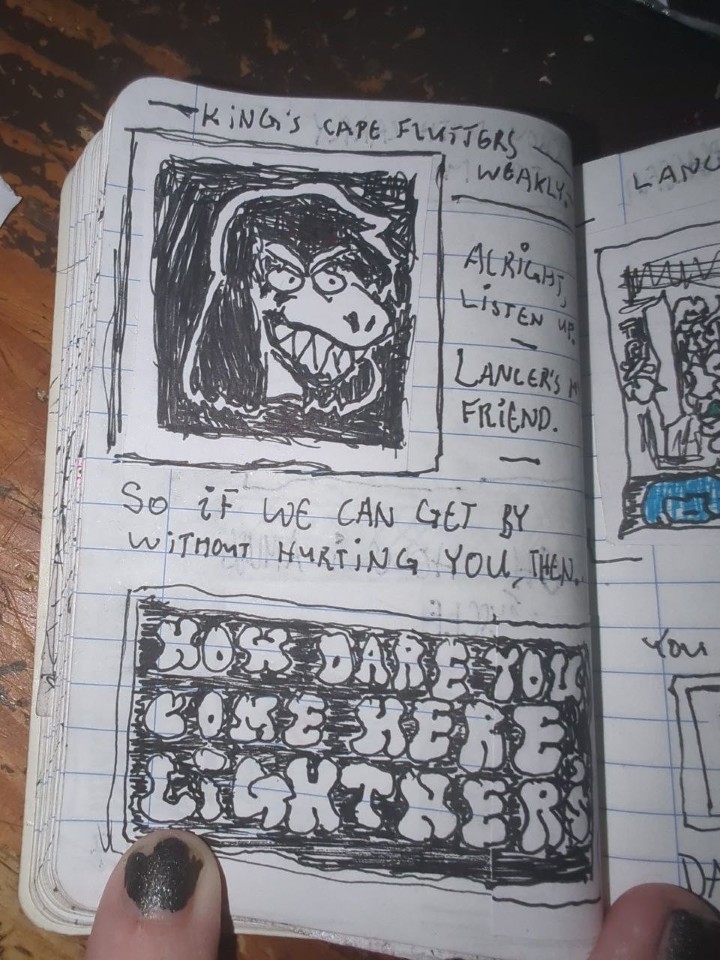 KiNG's CAPE FLUTTERS
WEAKLY.
ALRiGHT,
LiSTEN UP.
LANCER'S
FRiEND.
SO iF WE CAN GET BY
WiTHOUT HURTiNG YOU, THEN.
HOW DARE YOU
COME HERE,
LiGHTNERS
LANC
YOU
DA